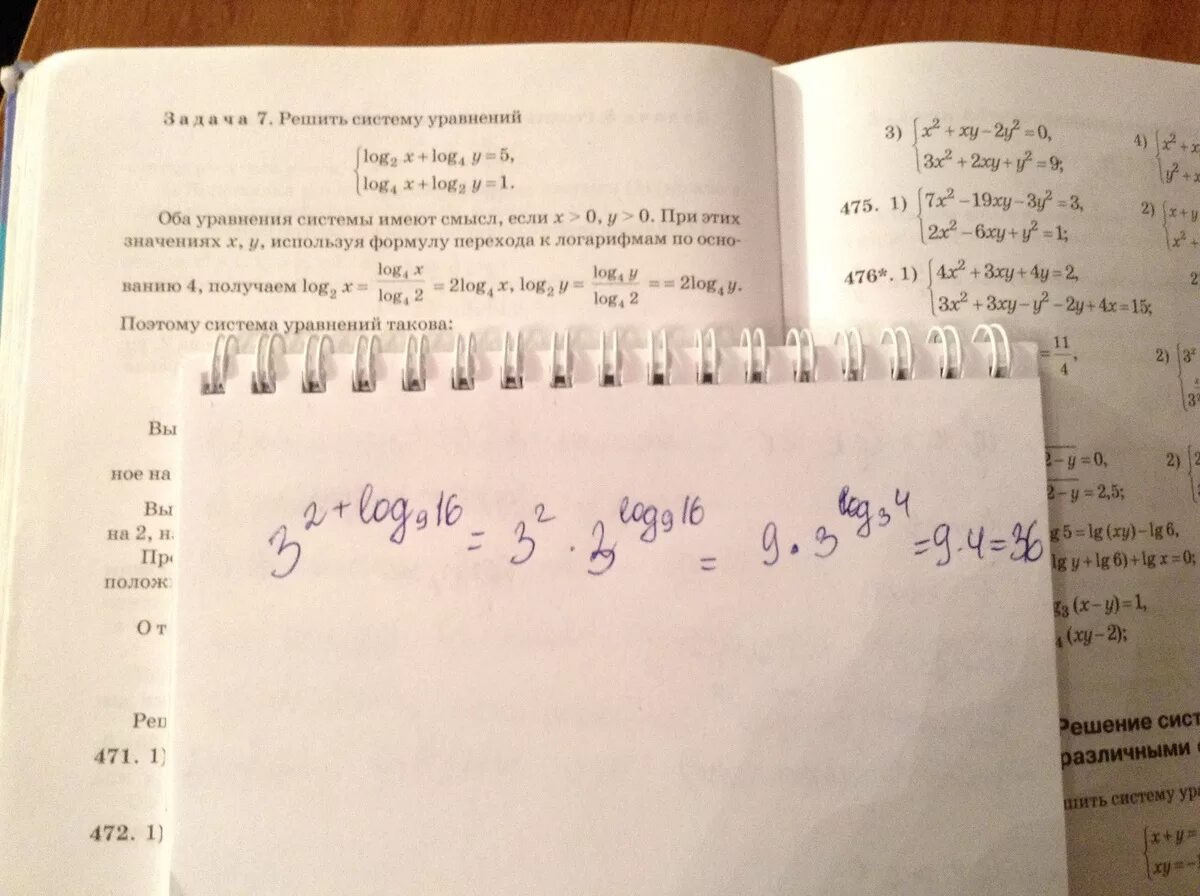 Задача 7. Решить систему уравнений
log₂ x + log₄ y = 5,
log₄ x + log₂ y = 1.
Оба уравнения системы имеют смысл, если x > 0, y > 0. При этих
значениях x, y, используя формулу перехода к логарифмам по осно-
ванию 4, получаем log₂ x = log₄ x / log₄ 2 = 2log₄ x, log₂ y = log₄ y / log₄ 2 = = 2log₄ y.
Поэтому система уравнений такова:
Вы
ное на
Вы
на 2, н
Пре
полож
От
Реш
471. 1)
472. 1)
3^(2 + log₉ 16) = 3² · 3^(log₉ 16) = 9 · 3^(log₃ 4) = 9 · 4 = 36
3) x² + xy − 2y² = 0,
3x² + 2xy + y² = 9;
4) x² + x
y² + x
475. 1) 7x² − 19xy − 3y² = 3,
2x² − 6xy + y² = 1;
2) x + y
x² +
476*. 1) 4x² + 3xy + 4y = 2,
3x² + 3xy − y² − 2y + 4x = 15;
2
= 11/4,
2) 3²
3
2 − y = 0,
2 − y = 2,5;
2) 2
g 5 = lg (xy) − lg 6,
lg y + lg 6) + lg x = 0;
g₃ (x − y) = 1,
₄ (xy − 2);
Решение сист
различными
шить систему ур
x + y =
xy = −